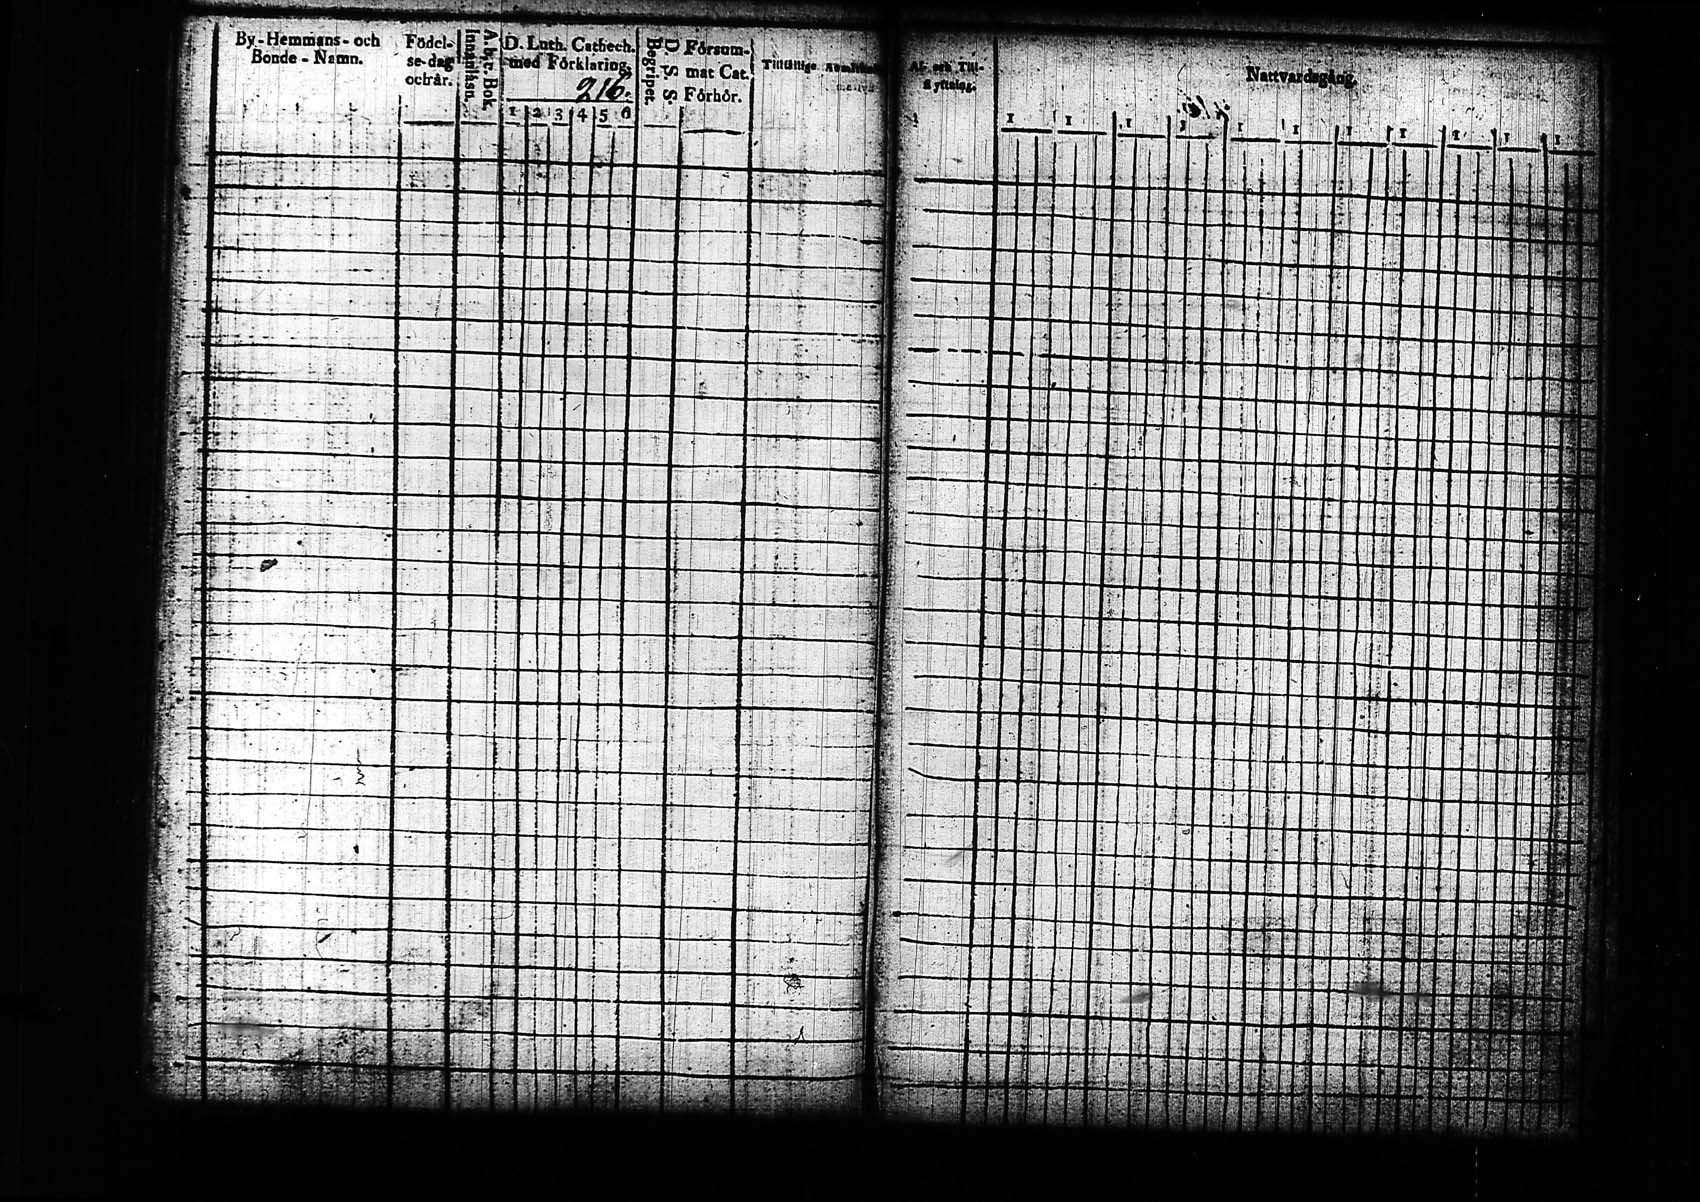 By-Hemmans- och
Bonde-Namn.
Födel-
se-dag
och år.
A.b.c.Bok
Innanläsn.
D. Luth. Cathech.
med Förklaring.
216.
1 2 3 4 5 6
D. S. S.
Begripet.
Försum-
mat Cat.
Förhör.
Tillfällige
Af- och Till-
flyttning.
Nattvardsgång.
1 1 1 1 1 1 1 1 1 1 1